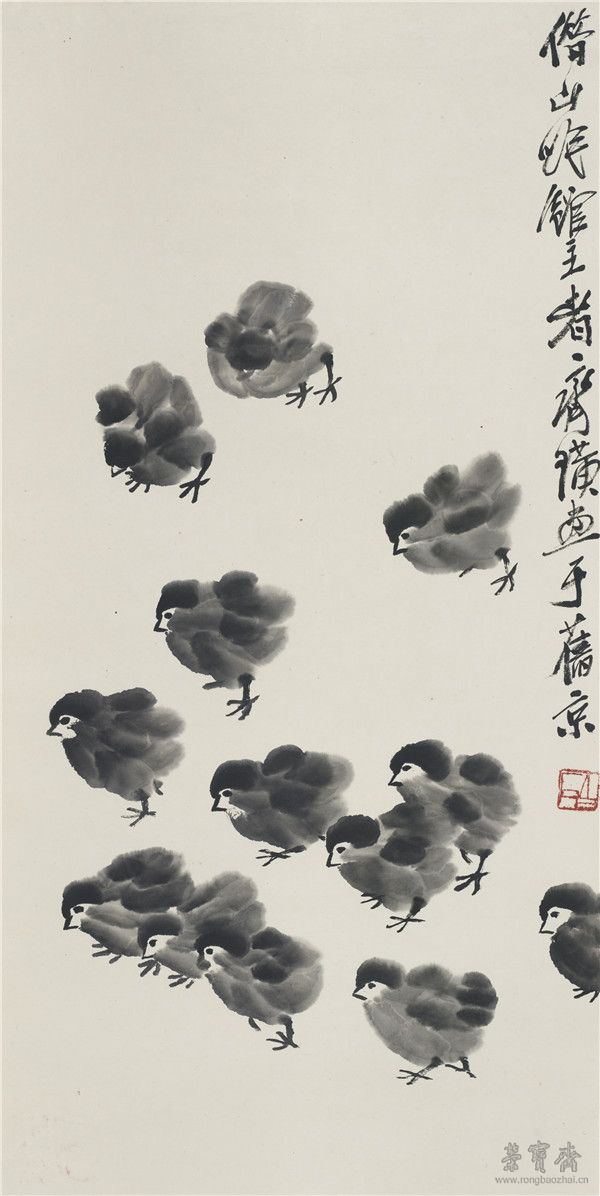 借山吟館主者齊璜畫于舊京
榮寶齋
www.rongbaozhai.cn